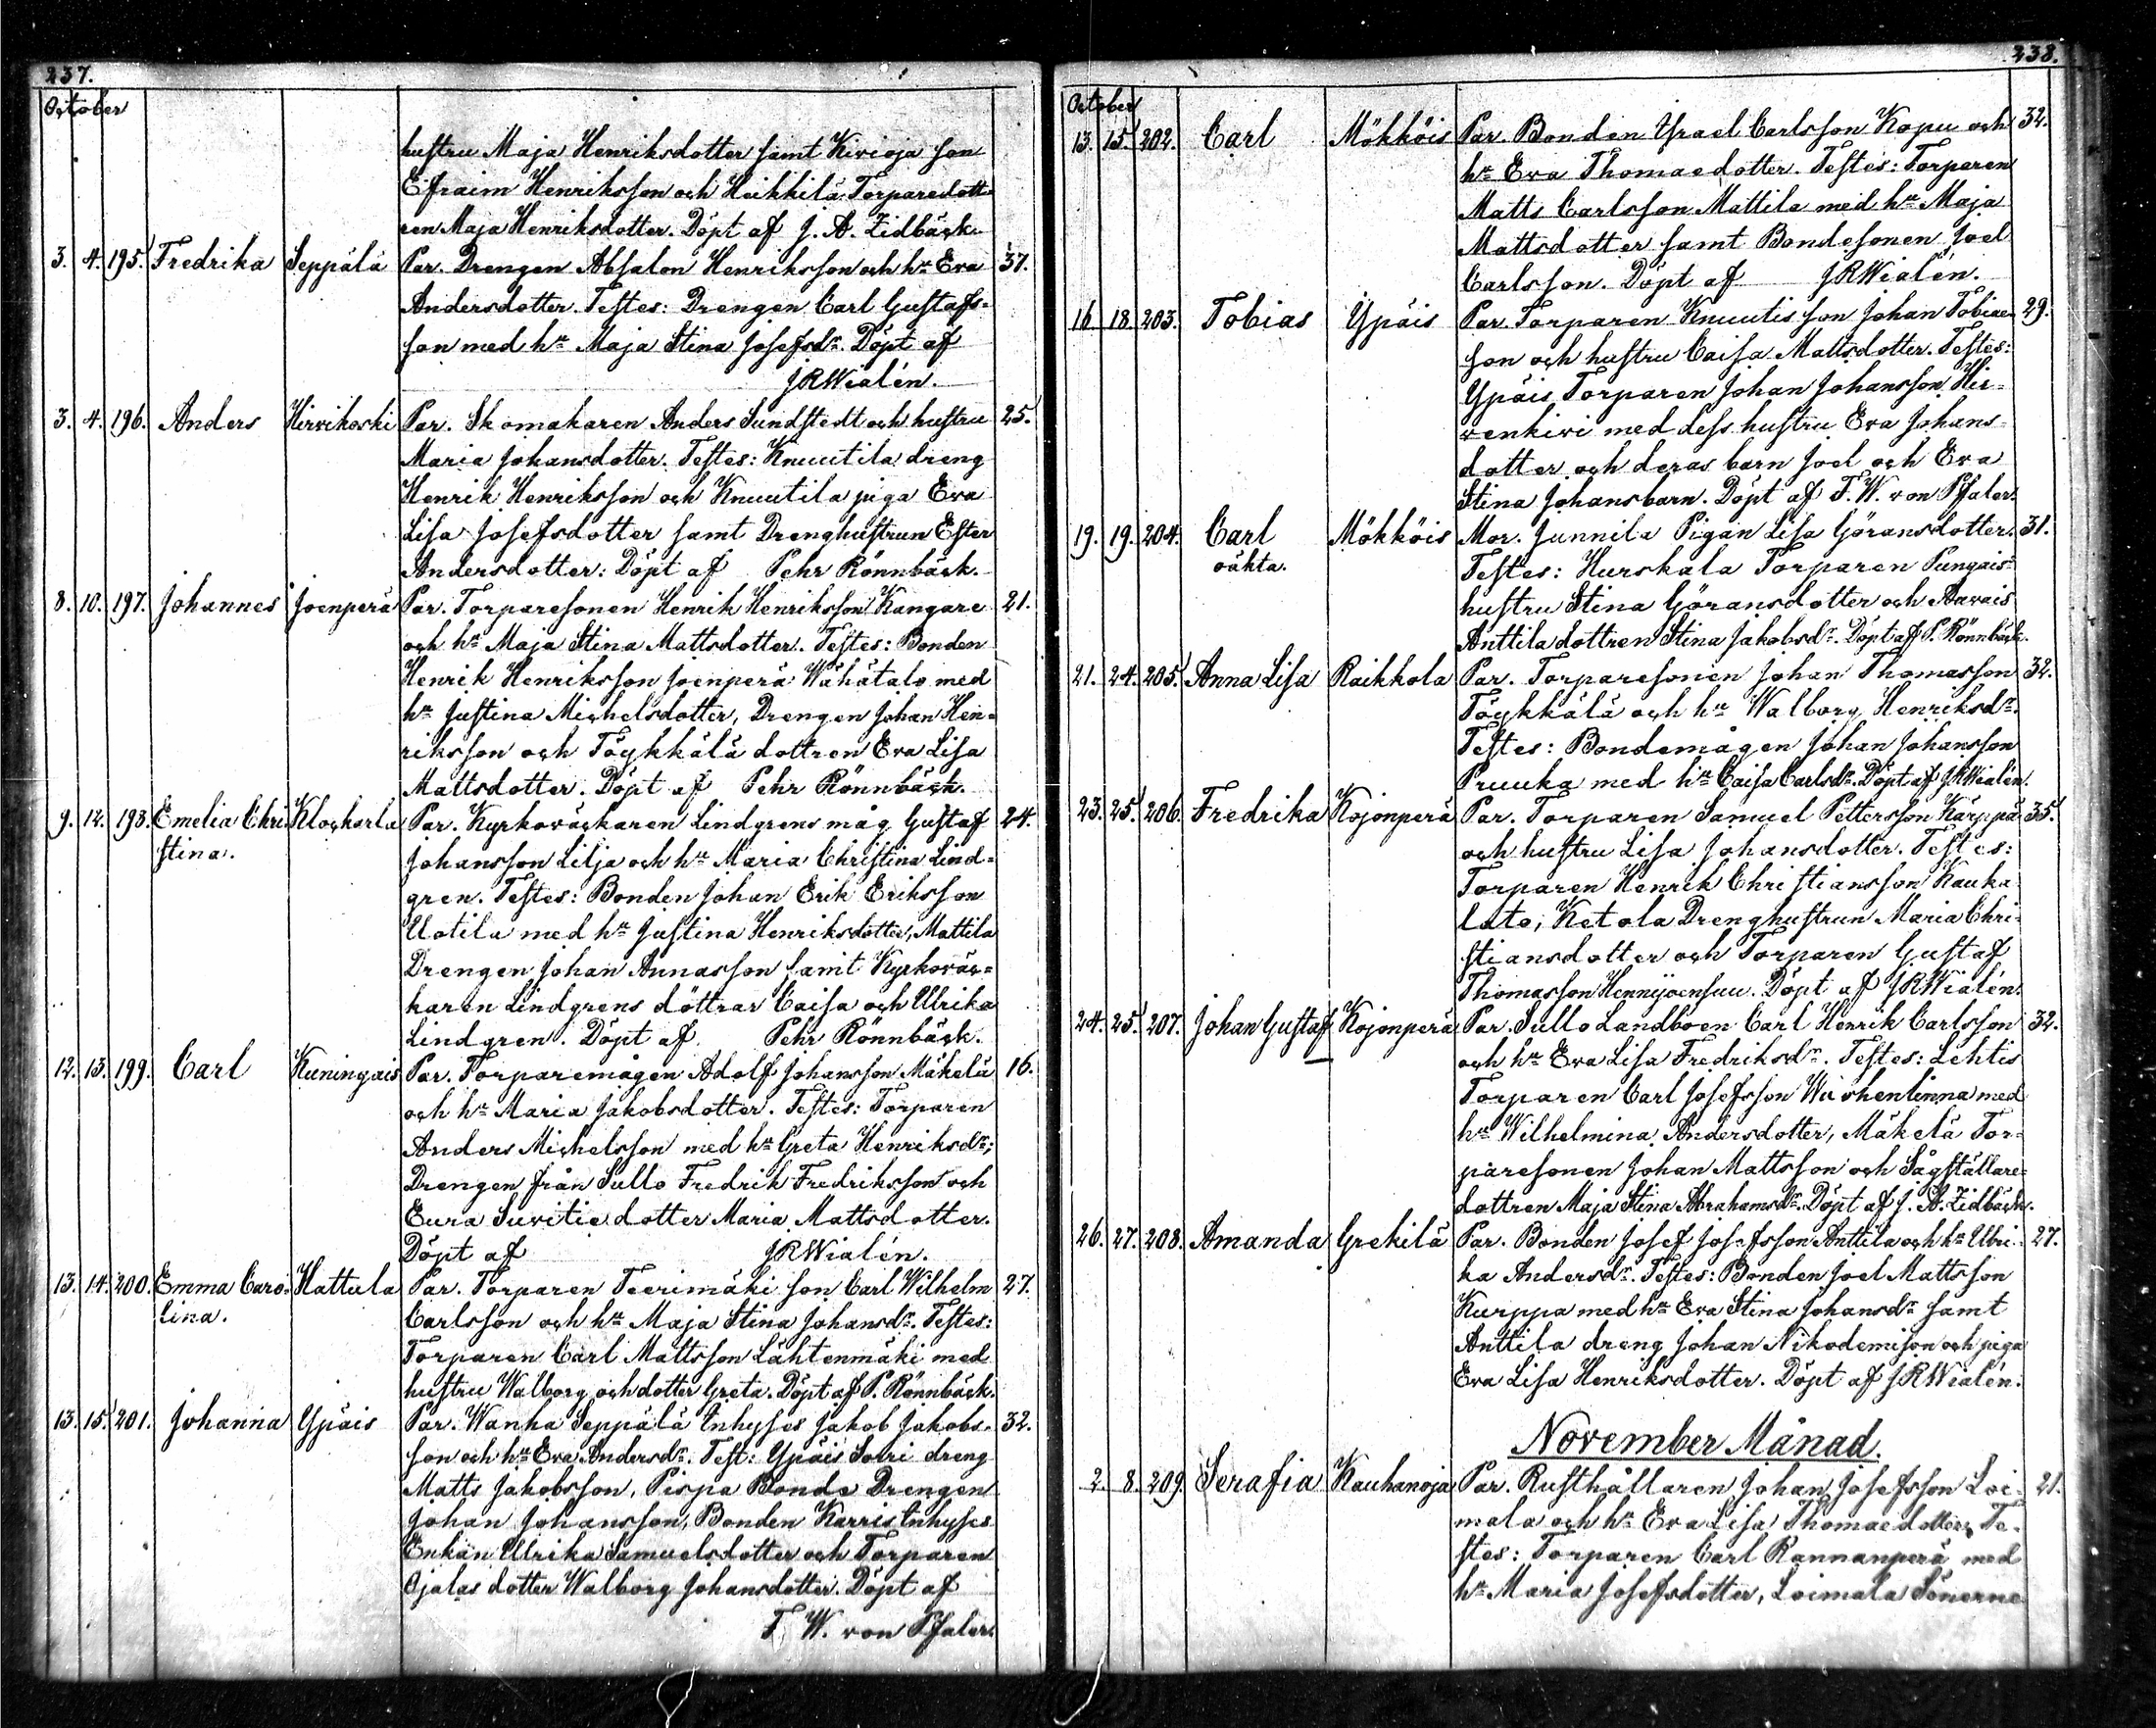 237.
October
hustru Maja Henriksdotter samt Kivioja son
Efraim Henriksson och Heikkilä Torparedott=
ren Maja Henriksdotter. Döpt af J. A. Zidbäck.
3. 4. 195. Fredrika Seppälä Par. Drengen Absalon Henriksson och hu Eva 37.
Andersdotter. Testes: Drengen Carl Gustafs=
son med hu Maja Stina Josefsdr. Döpt af
JRWialén.
3. 4. 196. Anders Hirvikoski Par. Skomakaren Anders Sundstedt och hustru 25.
Maria Johansdotter. Testes: Knuutila dreng
Henrik Henriksson och Knuutila piga Eva
Lisa Josefsdotter samt Drenghustrun Ester
Andersdotter: Döpt af Pehr Rönnbäck.
8. 10. 197. Johannes Joenperä Par. Torparesonen Henrik Henriksson Kangare 21.
och hu Maja Stina Mattsdotter. Testes: Bonden
Henrik Henriksson Joenperä Wähätalo med
hu Justina Michelsdotter, Drengen Johan Hen=
riksson och Töykkälä dottren Eva Lisa
Mattsdotter. Döpt af Pehr Rönnbäck.
9. 12. 198. Emelia Chri Klockarla Par. Kyrkoväckaren Lindgrens måg Gustaf 24.
stina. Johansson Lilja och hu Maria Christina Lind=
gren. Testes: Bonden Johan Erik Eriksson
Uotila med hu Justina Henriksdotter, Mattila
Drengen Johan Annasson samt Kyrkoväc=
karen Lindgrens döttrar Caisa och Ulrika
Lindgren. Döpt af Pehr Rönnbäck.
12. 13. 199. Carl Kuningais Par. Torparemågen Adolf Johansson Mäkelä 16.
och hu Maria Jakobsdotter. Testes: Torparen
Anders Michelsson med hu Greta Henriksdr;
Drengen från Sullo Fredrik Fredriksson och
Eura Suvitie dotter Maria Mattsdotter.
Döpt af JRWialén.
13. 14. 200. Emma Caro= Hattula Par. Torparen Teerimäki son Carl Wilhelm 27.
lina. Carlsson och hu Maja Stina Johansdr. Testes:
Torparen Carl Mattsson Lähtenmäki med
hustru Walborg och dotter Greta. Döpt af P. Rönnbäck.
13. 15. 201. Johanna Ypäis Par. Wanha Seppälä Inhyses Jakob Jakobs= 32.
son och hu Eva Andersdr. Test: Ypäis Sotri dreng
Matts Jakobsson, Pispa Bonde Drengen
Johan Johansson, Bonden Karris Inhyses
Enkan Ulrika Samuelsdotter och Torparen
Ojalas dotter Walborg Johansdotter. Döpt af
F W. von Pfaler.
238.
October
13. 15. 202. Carl Mökköis Par. Bonden Ysrael Carlsson Kopu och 32.
hu Eva Thomaedotter. Testes: Torparen
Matts Carlsson Mattila med hu Maja
Mattsdotter samt Bondesonen Joel
Carlsson. Döpt af JRWialén.
16 18. 203. Tobias Ypäis Par. Torparen Knuutis son Johan Tobiae 29.
son och hustru Caisa Mattsdotter. Testes:
Ypäis Torparen Johan Johansson Hir=
venkivi med dess hustru Eva Johans=
dotter och deras barn Joel och Eva
Stina Johansbarn. Döpt af F. W. von Pfaler.
19. 19. 204. Carl Mökköis Mor. Junnila Pigan Lisa Göransdotter. 31.
oäkta. Testes: Hurskala Torparen Pungais=
hustru Stina Göransdotter och Aavais
Anttila dottren Stina Jakobsdr. Döpt af P. Rönnbäck.
21. 24. 205. Anna Lisa Raikkola Par. Torparesonen Johan Thomasson 32.
Töykkälä och hu Walborg Henriksdr.
Testes: Bondemågen Johan Johansson
Pruuka med hu Caisa Carlsdr. Döpt af JRWialén.
23. 25. 206. Fredrika Kojonperä Par. Torparen Samuel Pettersson Kärppä 35.
och hustru Lisa Johansdotter. Testes:
Torparen Henrik Christiansson Kauka
lato, Ketola Drenghustrun Maria Chri
stiansdotter och Torparen Gustaf
Thomasson Hennijoensuu. Döpt af JRWialén.
24. 25. 207. Johan Gustaf Kojonperä Par. Sullo Landboen Carl Henrik Carlsson 32.
och hu Eva Lisa Fredriksdr. Testes: Lehtis
Torparen Carl Josefsson med
hu Wilhelmina Andersdotter, Mäkelä Tor=
paresonen Johan Mattsson och Sågställare=
dottren Maja Stina Abrahamsdr. Döpt af J. A. Zidbäck.
26. 27. 208. Amanda Grekilä Par. Bonden Josef Josefsson Anttila och hu Ulri 27.
ka Andersdr. Testes: Bonden Joel Mattsson
Kurppa med hu Eva Stina Johansdr samt
Anttila dreng Johan Nikodemison och piga
Eva Lisa Henriksdotter. Döpt af JRWialén.
November Månad.
2. 8. 209. Serafia Kauhanoja Par. Rusthållaren Johan Josefsson Loi= 21.
mala och hu Eva Lisa Thomaedotter. Te=
stes: Torparen Carl Rannanperä med
hu Maria Josefsdotter, Loimala Sönerne